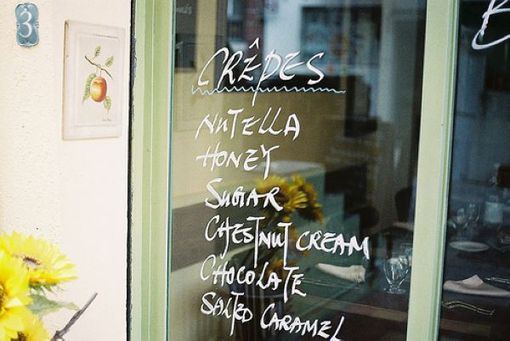 3
CRÊPES
NUTELLA
HONEY
SUGAR
CHESTNUT CREAM
CHOCOLATE
SALTED CARAMEL